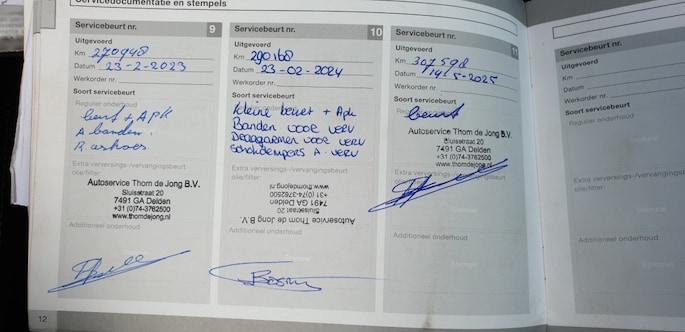 Servicedocumentatie en stempels
Servicebeurt nr. 9
Uitgevoerd
Km 270948
Datum 23-2-2023
Werkorder nr.
Soort servicebeurt
Regulier onderhoud
beurt + APK
A banden.
Extra verversings-/vervangingsbeurt
olie/filter:
Autoservice Thom de Jong B.V.
Sluisstraat 20
7491 GA Delden
+31 (0)74-3762500
www.thomdejong.nl
Additioneel onderhoud
12
Servicebeurt nr. 10
Uitgevoerd
Km 290168
Datum 23-02-2024
Werkorder nr.
Soort servicebeurt
Kleine beurt + Apk
Banden voor verv
Draagarmen voor verv
Schokdempers A verv
Extra verversings-/vervangingsbeurt
olie/filter:
Autoservice Thom de Jong B.V.
Sluisstraat 20
7491 GA Delden
+31 (0)74-3762500
www.thomdejong.nl
Additioneel onderhoud
Servicebeurt nr. 11
Uitgevoerd
Km 307598
Datum 14-5-2025
Werkorder nr.
Soort servicebeurt
Regulier onderhoud
beurt
Autoservice Thom de Jong B.V.
Sluisstraat 20
7491 GA Delden
+31 (0)74-3762500
www.thomdejong.nl
Additioneel onderhoud
Servicebeurt nr.
Uitgevoerd
Km
Datum
Werkorder nr.
Soort servicebeurt
Regulier onderhoud
Extra verversings-/vervangingsbeurt
olie/filter:
Additioneel onderhoud